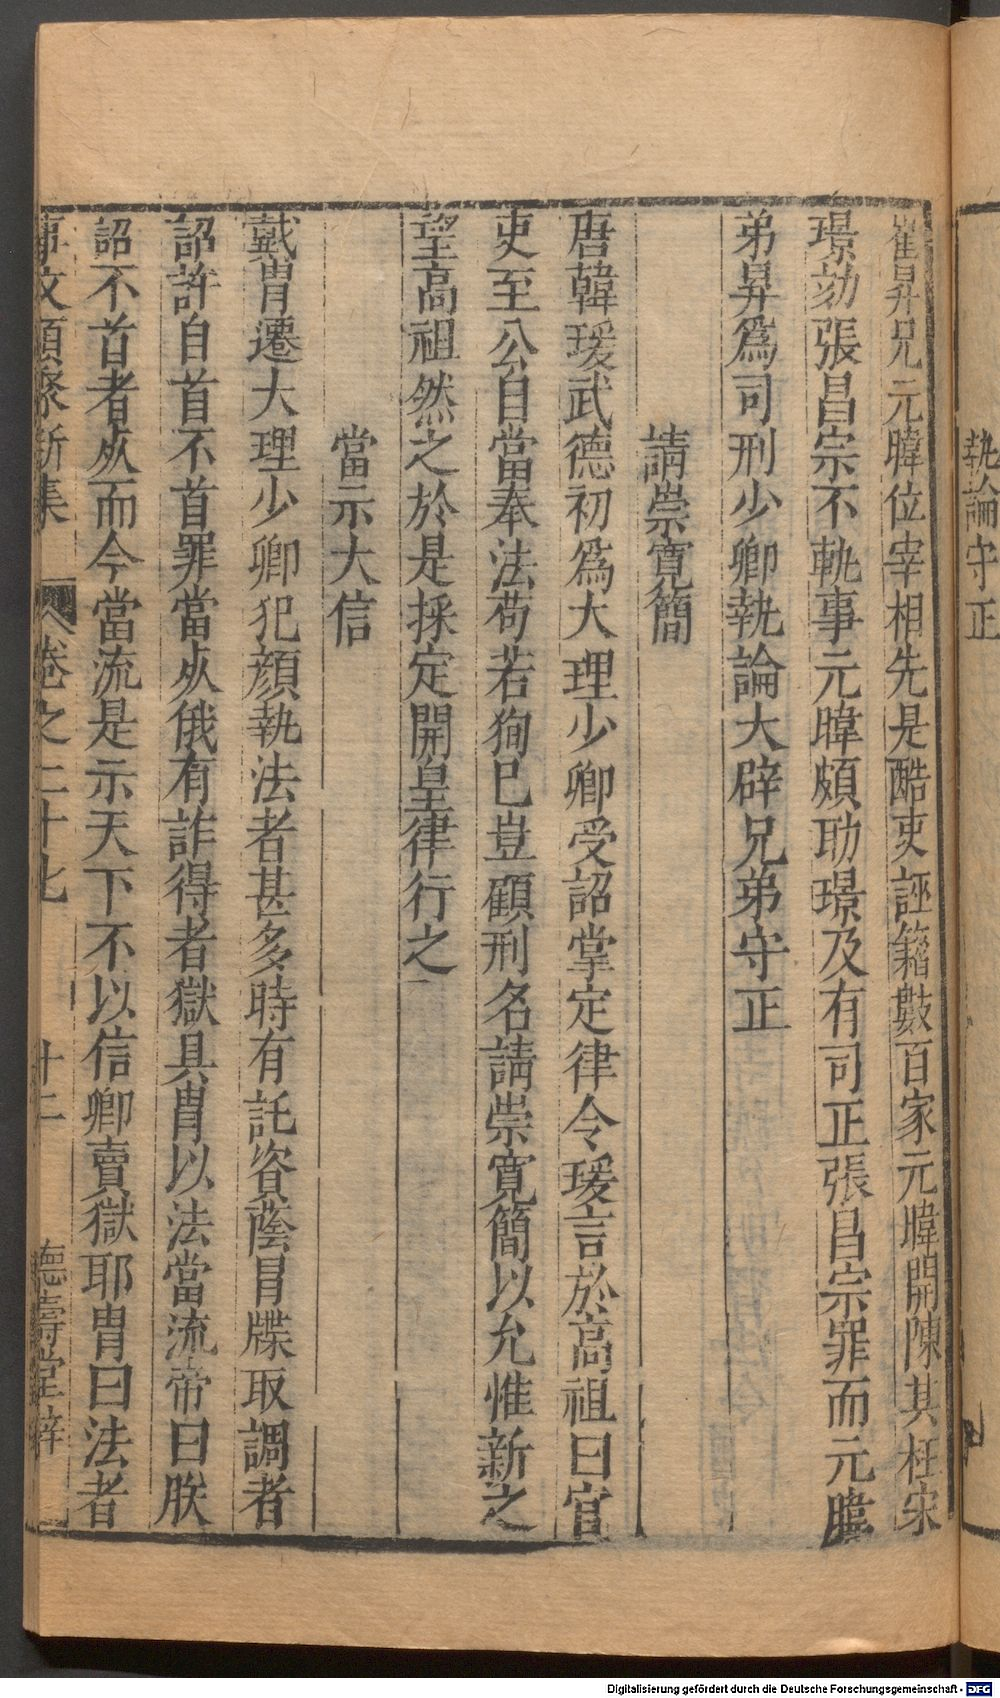 執論守正
崔昇兄元暐位宰相先是酷吏誣籍數百家元暐開陳其枉宋
璟劾張昌宗不軌事元暐頗助璟及有司正張昌宗罪而元暐
弟昇爲司刑少卿執論大辟兄弟守正
請崇寬簡
唐韓瑗武德初爲大理少卿受詔掌定律令瑗言於高祖曰官
吏至公自當奉法苟若狥巳豈顧刑名請崇寬簡以允惟新之
望高祖然之於是採定開皇律行之
當示大信
戴胄遷大理少卿犯顔執法者甚多時有託資蔭冐牒取調者
詔許自首不首罪當死俄有詐得者獄具胄以法當流帝曰朕
詔不首者死而今當流是示天下不以信卿賣獄耶胄曰法者
事文類聚新集 卷之二十九 十二 德壽堂梓
Digitalisierung gefördert durch die Deutsche Forschungsgemeinschaft - DFG